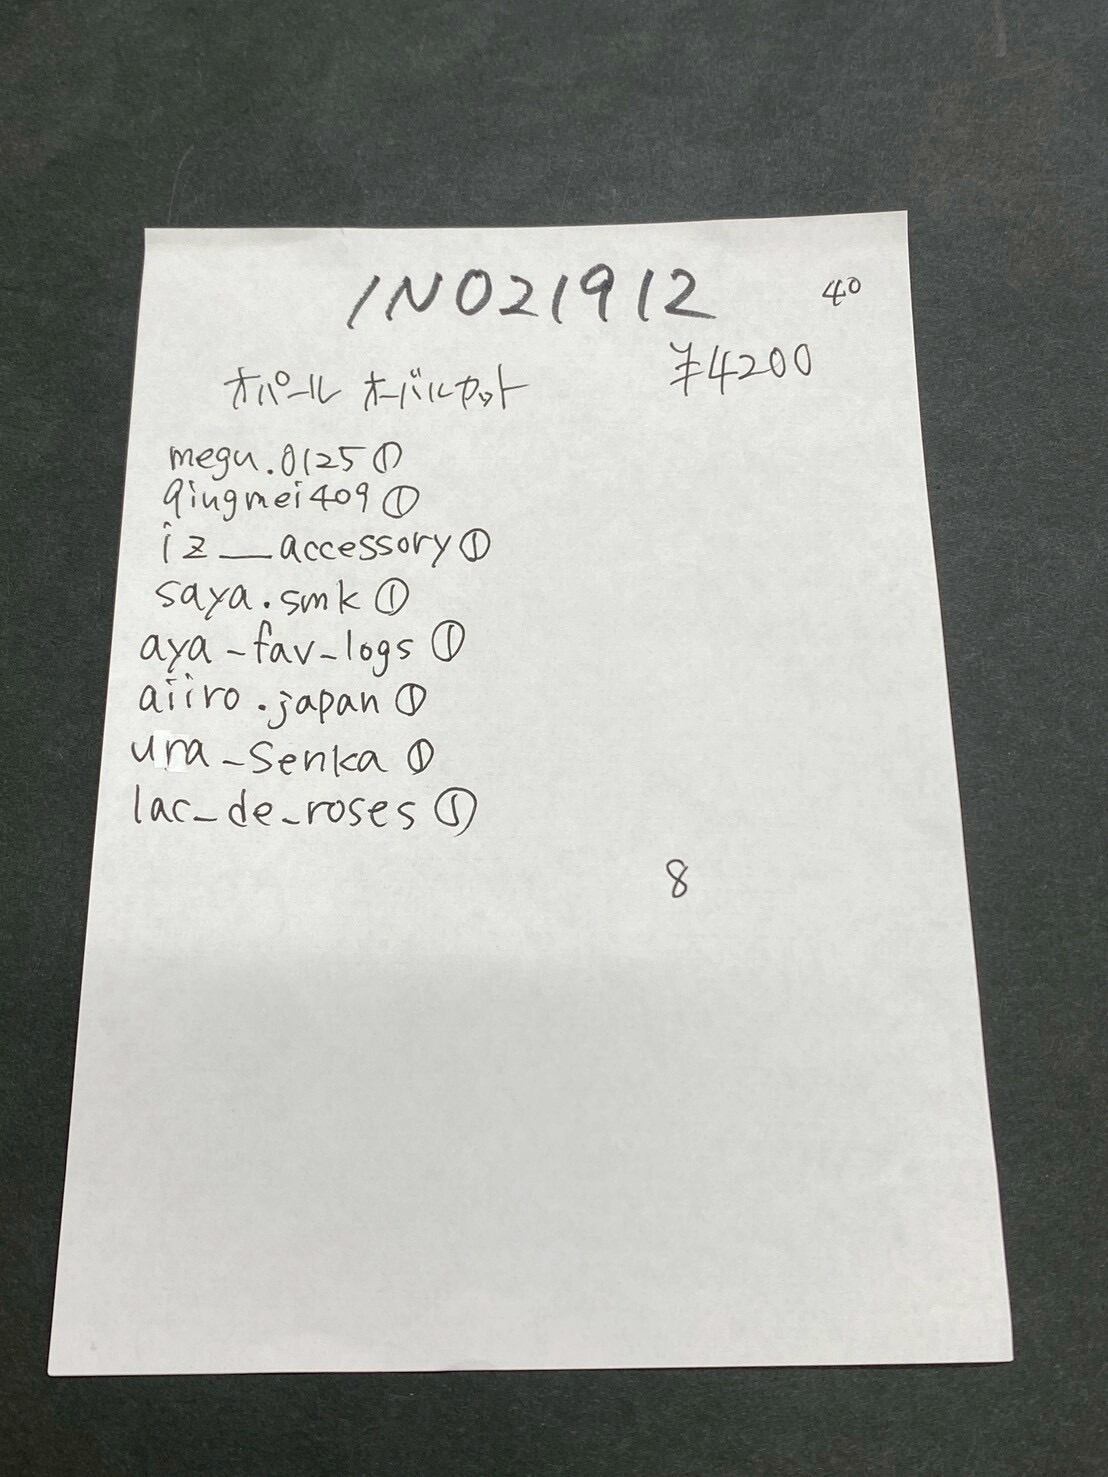 1N021912
40
¥4200
オパール オーバルカット
megu.0125①
qiugmei409①
iz__accessory①
saya.smk①
aya-fav-logs①
aiiro.japan①
ura-senka①
lac-de-roses①
8